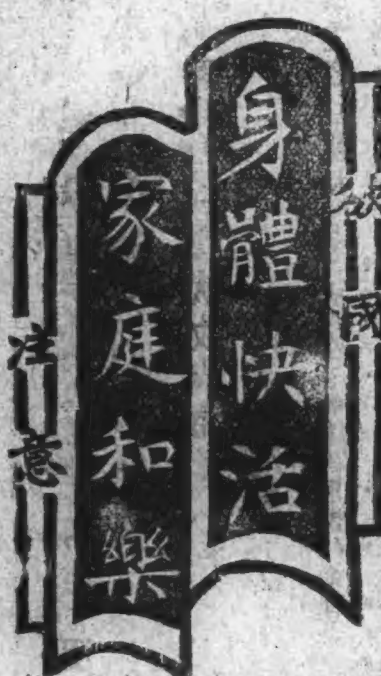 身體快活
家庭和樂
注意